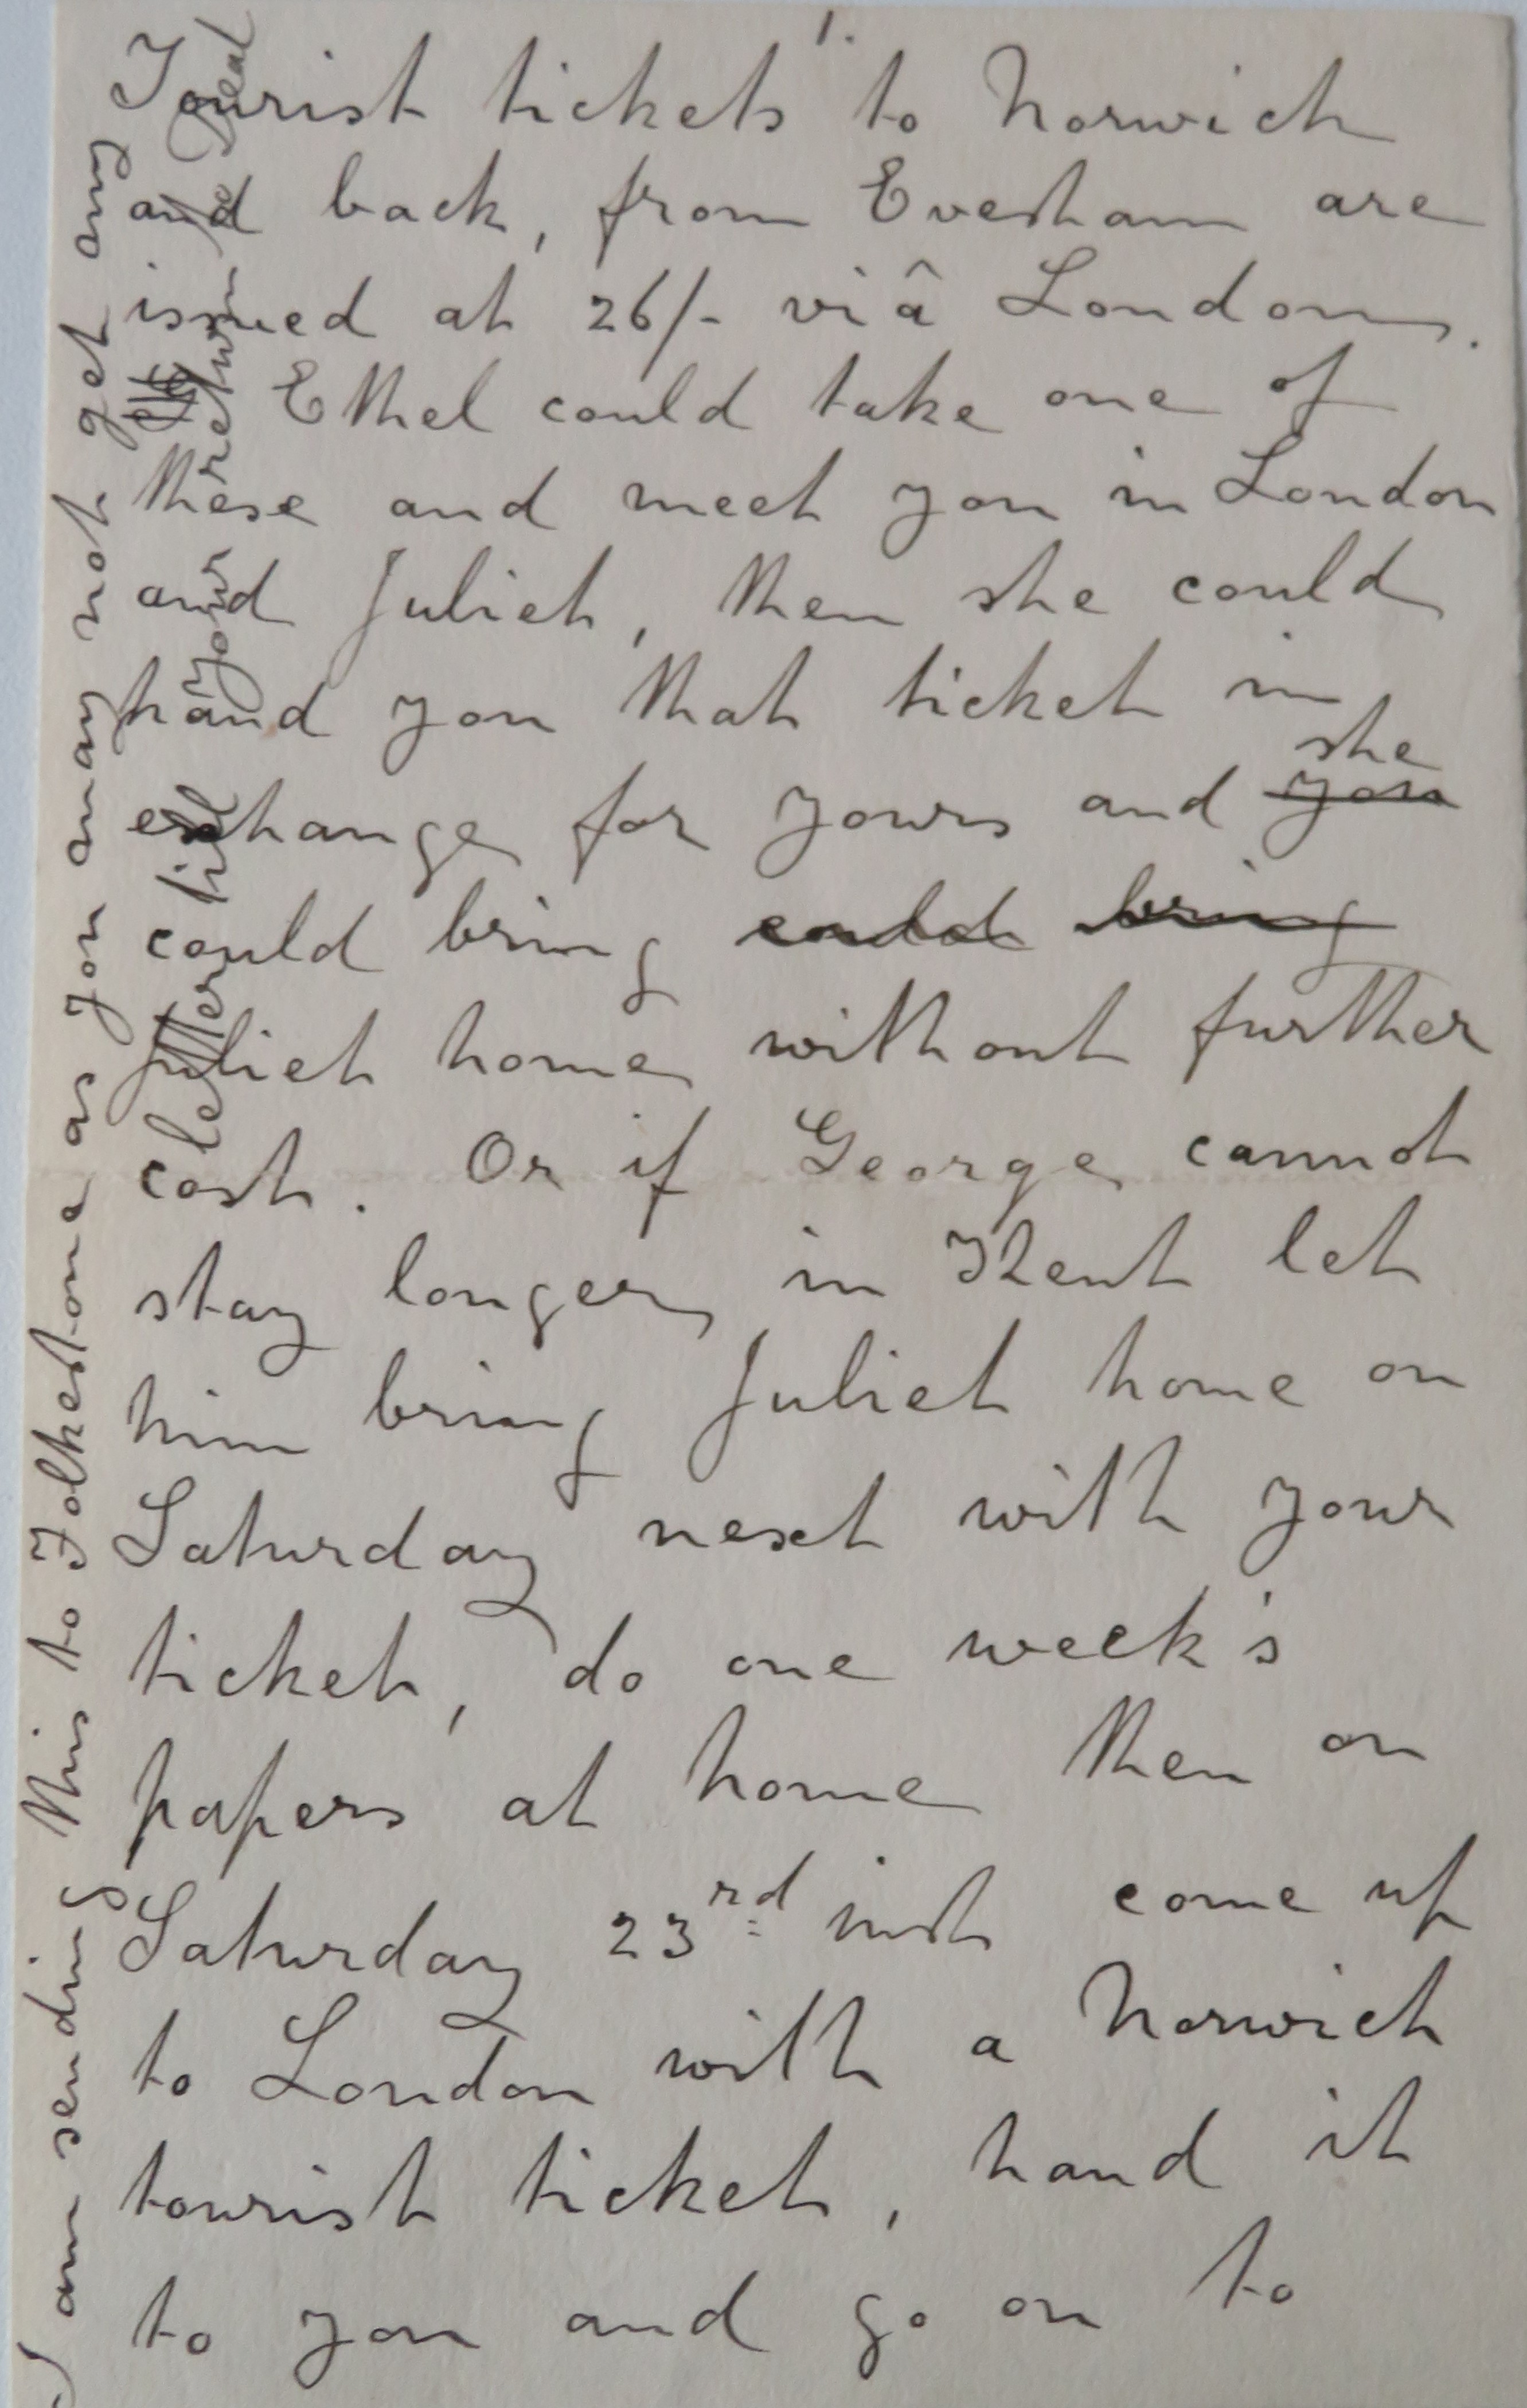 1.
Tourist tickets to Norwich
and back, from Evesham are
issued at 26/- viâ London.
Ethel could take one of
these and meet you in London
and Juliet, then she could
hand you that ticket in
she
exchange for yours and you
could bring could bring
Juliet home without further
cost. Or if George cannot
stay longer in Kent let
him bring Juliet home on
Saturday next with your
ticket, do one week's
papers at home then on
Saturday 23rd inst come up
to London with a Norwich
tourist ticket, hand it
to you and go on to
I am sending this to Folkestone as you may not get any
letter till your return to Deal